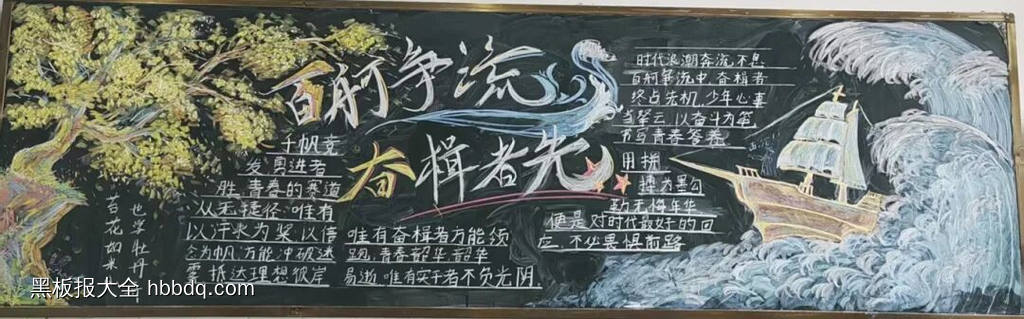 百舸争流
奋楫者先
千帆竞
发勇进者
胜,青春的赛道
从无捷径,唯有
以汗水为桨,以信
念为帆,方能冲破迷
雾,抵达理想彼岸
唯有奋楫者方能领
跑,青春韶华
易逝,唯有实干者不负光阴
时代浪潮奔流不息
百舸争流中,奋楫者
终占先机,少年心事
当拏云,以奋斗为笔
书写青春答卷
用拼
搏为墨勾
勒无悔年华
便是对时代最好的回
应,不必畏惧前路
也学牡丹
苔花如米
黑板报大全 hbbdq.com